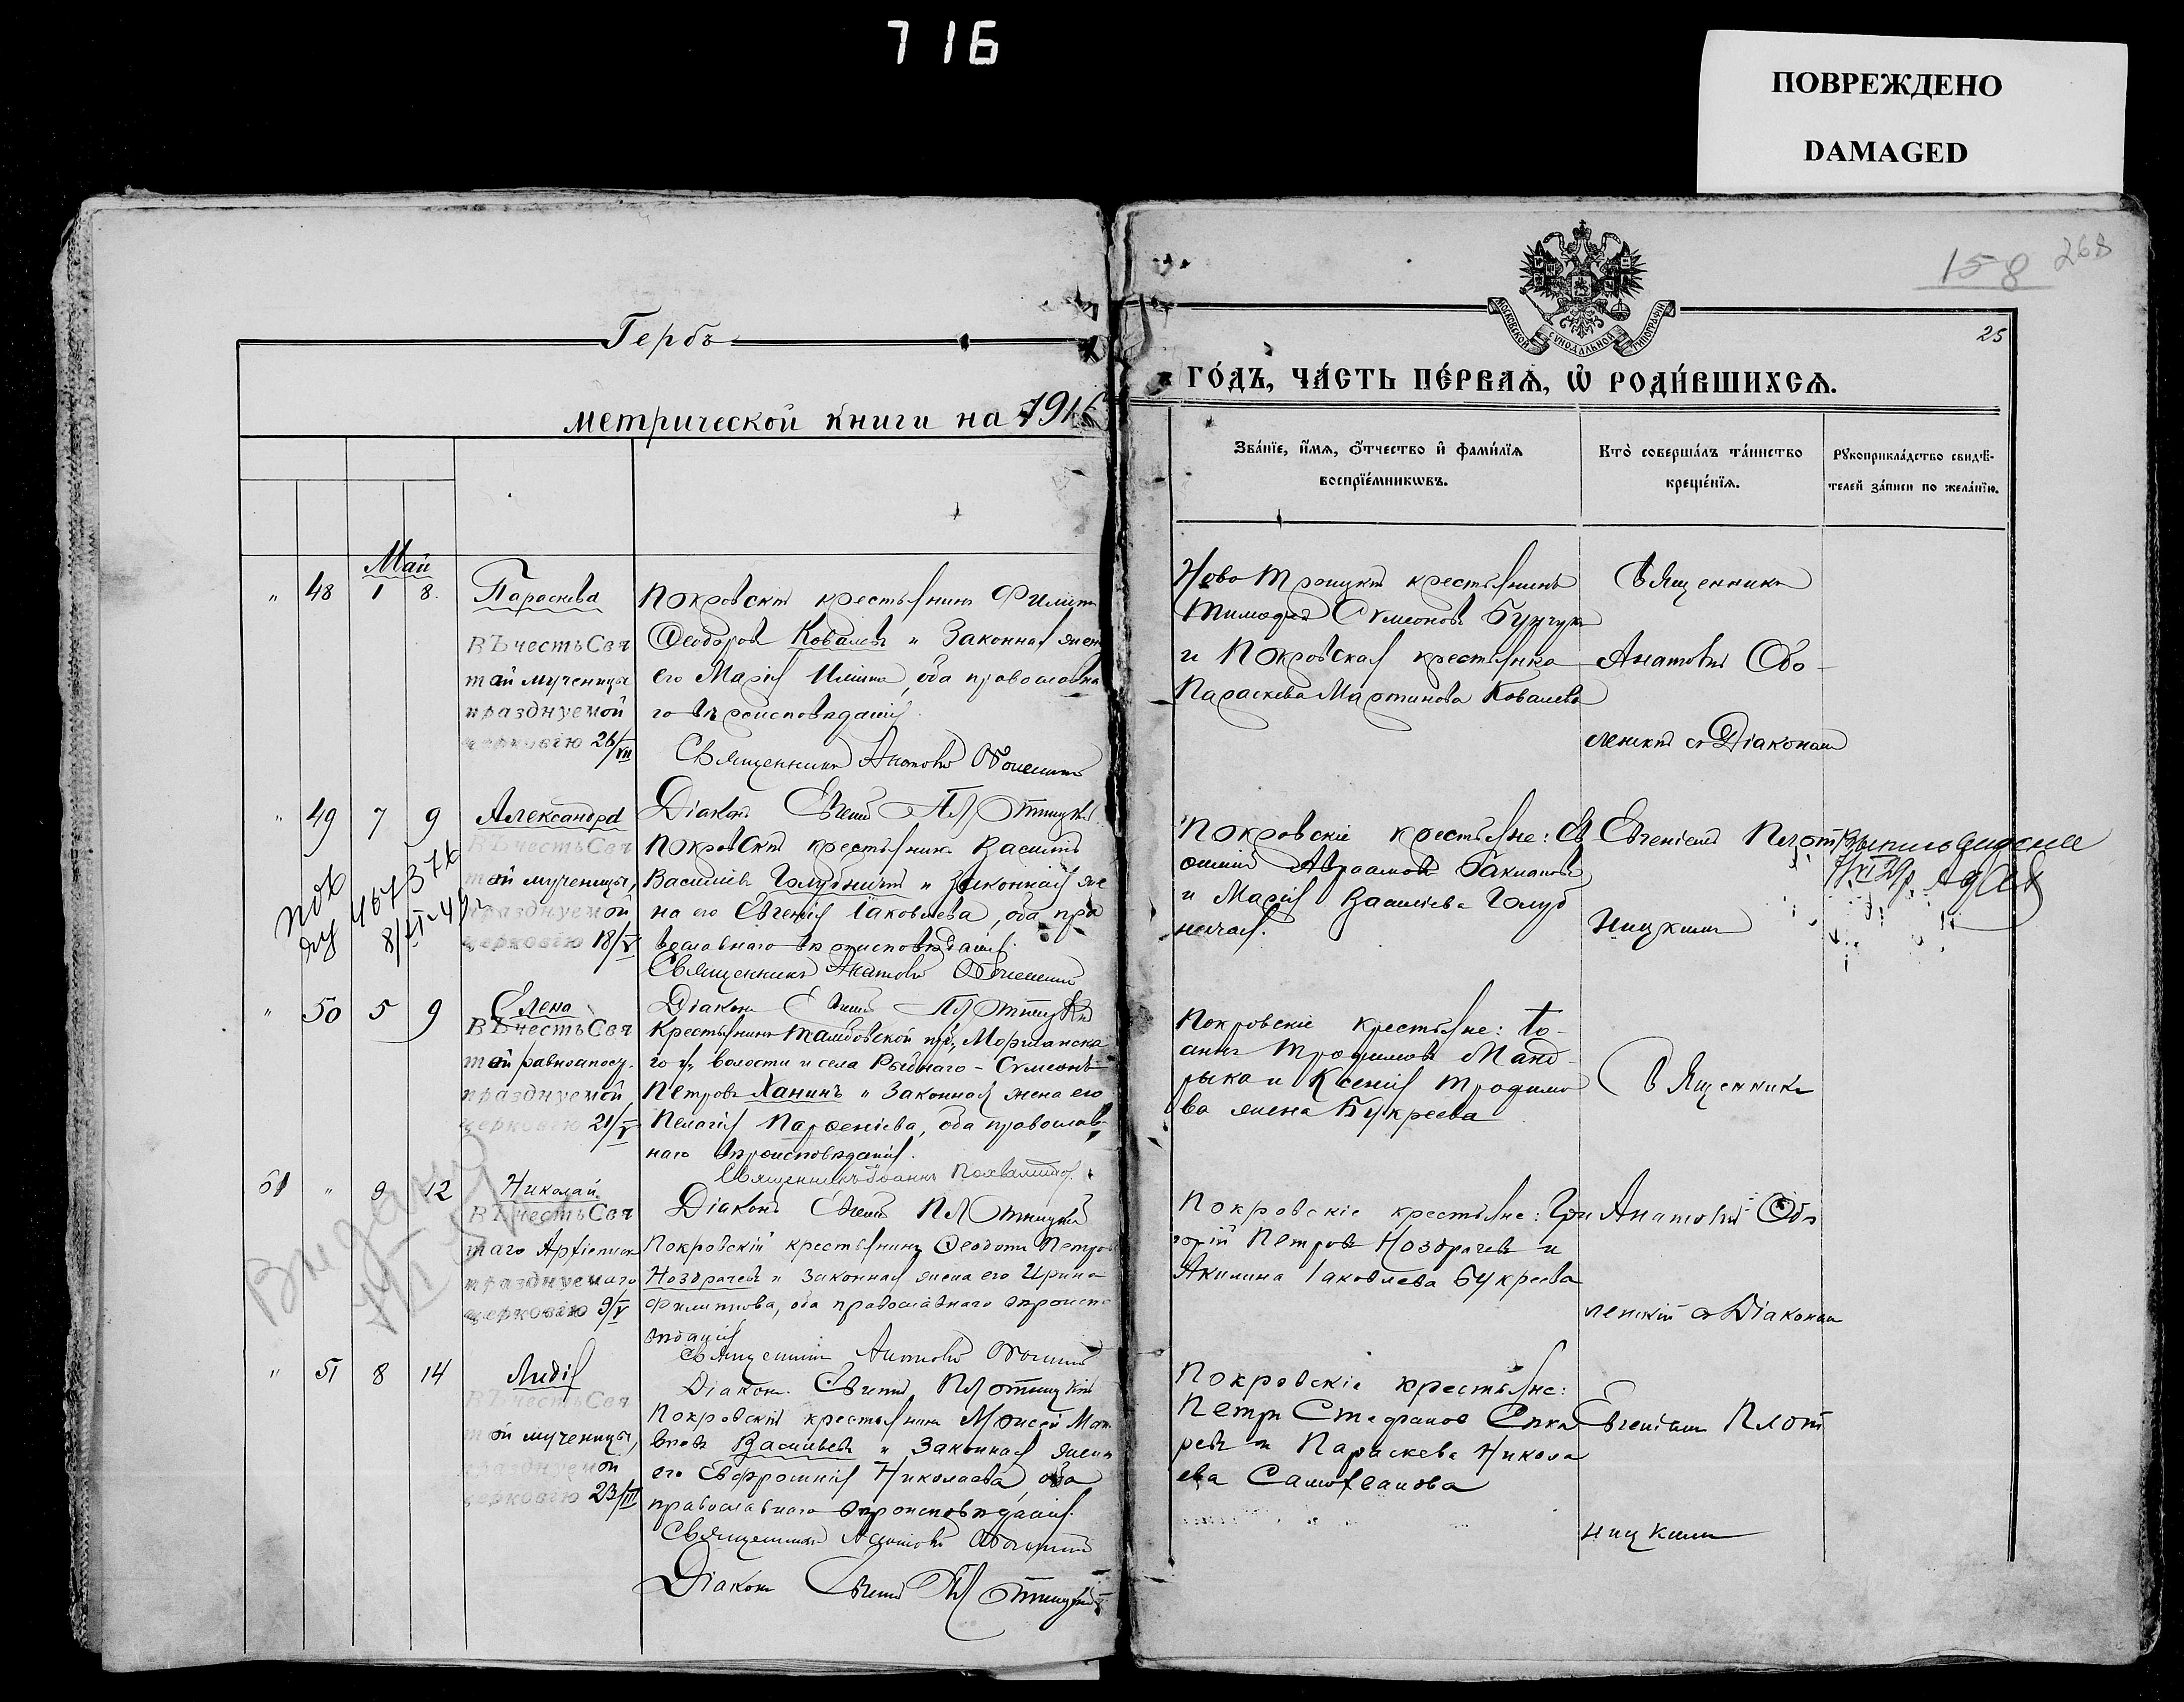 716
ПОВРЕЖДЕНО
DAMAGED
158 268
Гербъ
25
метрической книги на 191
МОСКОВСКОЙ СѴНОДАЛЬНОЙ ТИПОГРАФІИ
ГО́ДЪ, ЧА́СТЬ ПЕ́РВАѦ, Ѡ҆ РОДИ́ВШИХСѦ.
Зва́нїе, и҆́мѧ, ѻ҆́тчество и҆ фамѝлїѧ
воспрїе́мникѡвъ.
Кто̀ соверша́лъ та́инство
креще́нїѧ.
Рꙋкоприкла́дство свидѣ́-
телей за́писи по жела́нїю.
Май
" 48 1 8.
Параскева
Въ честь Свя
той мученицы
празднуемой
церковію 26/VII
Покровскій крестьянинъ Филиппъ
Ѳеодоровъ Ковалевъ и законная жена
его Марія Ильина, оба православна
го вѣроисповѣданія
Священникъ Анатолій
Діаконъ Евгеній Плотницкій
Ново Троицкій крестьянинъ
Тимофей Сѵмеоновъ
и Покровская крестьянка
Параскева Мартинова Ковалева
Священникъ
Анатолій Обо-
ленскій съ Діакономъ
" 49 7 9
Александра
Въ честь Свя
той мученицы,
празднуемой
церковію 18/V
467376
Покровскій крестьянинъ Василій
Васильевъ Голубничій и законная же
на его Евгенія Іаковлева, оба пра
вославнаго вѣроисповѣданія.
Священникъ Анатолій
Діаконъ Евгеній Плотницкій
Покровскіе крестьяне: Ев
Авраамовъ
и Марія Васильева Голуб
ничая.
Евгеніемъ Плот
ницкимъ
" 50 5 9
Елена
Въ честь Свя
той равноапост.
празднуемой
церковію 21/V
Крестьянинъ Тамбовской губ., Моршанска
го у., волости и села Рыбнаго - Сѵмеонъ
Петровъ Ханинъ и законная жена его
Пелагія Парѳеніева, оба православ-
наго вѣроисповѣданія.
Священникъ Іоаннъ
Діаконъ Евгеній Плотницкій
Покровскіе крестьяне: Іо-
аннъ Трофимовъ Манд-
рыка и Ксенія Трофимо
ва жена Букреева
Священникъ
51 " 9 12
Николай
Въ честь Свя
таго
праздныемаго
церковію 9/V
Покровскій крестьянинъ Ѳеодотъ Петровъ
Ноздрачевъ и законная жена его Ирина
Филиппова, оба православнаго вѣроиспо
вѣданія
Священникъ Анатолій
Діаконъ Евгеній Плотницкій
Покровскіе крестьяне: Гри
горій Петровъ Ноздрачевъ и
Акилина Іаковлева Букреева
Анатолій Обо
ленскій съ Діакономъ
" 51 8 14
Лидія
Въ честь Свя
той мученицы,
празднуемой
церковію 23/III
Покровскій крестьянинъ Моисей Мат
вѣевъ Васильевъ и законная жена
его Евфросинія Николаева, оба
православнаго вѣроисповѣданія.
Священникъ Анатолій
Діаконъ Евгеній Плотницкій
Покровскіе крестьяне:
Петръ Стефановъ
и Параскева Никола
ева Самойланова
Евгеніемъ Плот
ницкимъ